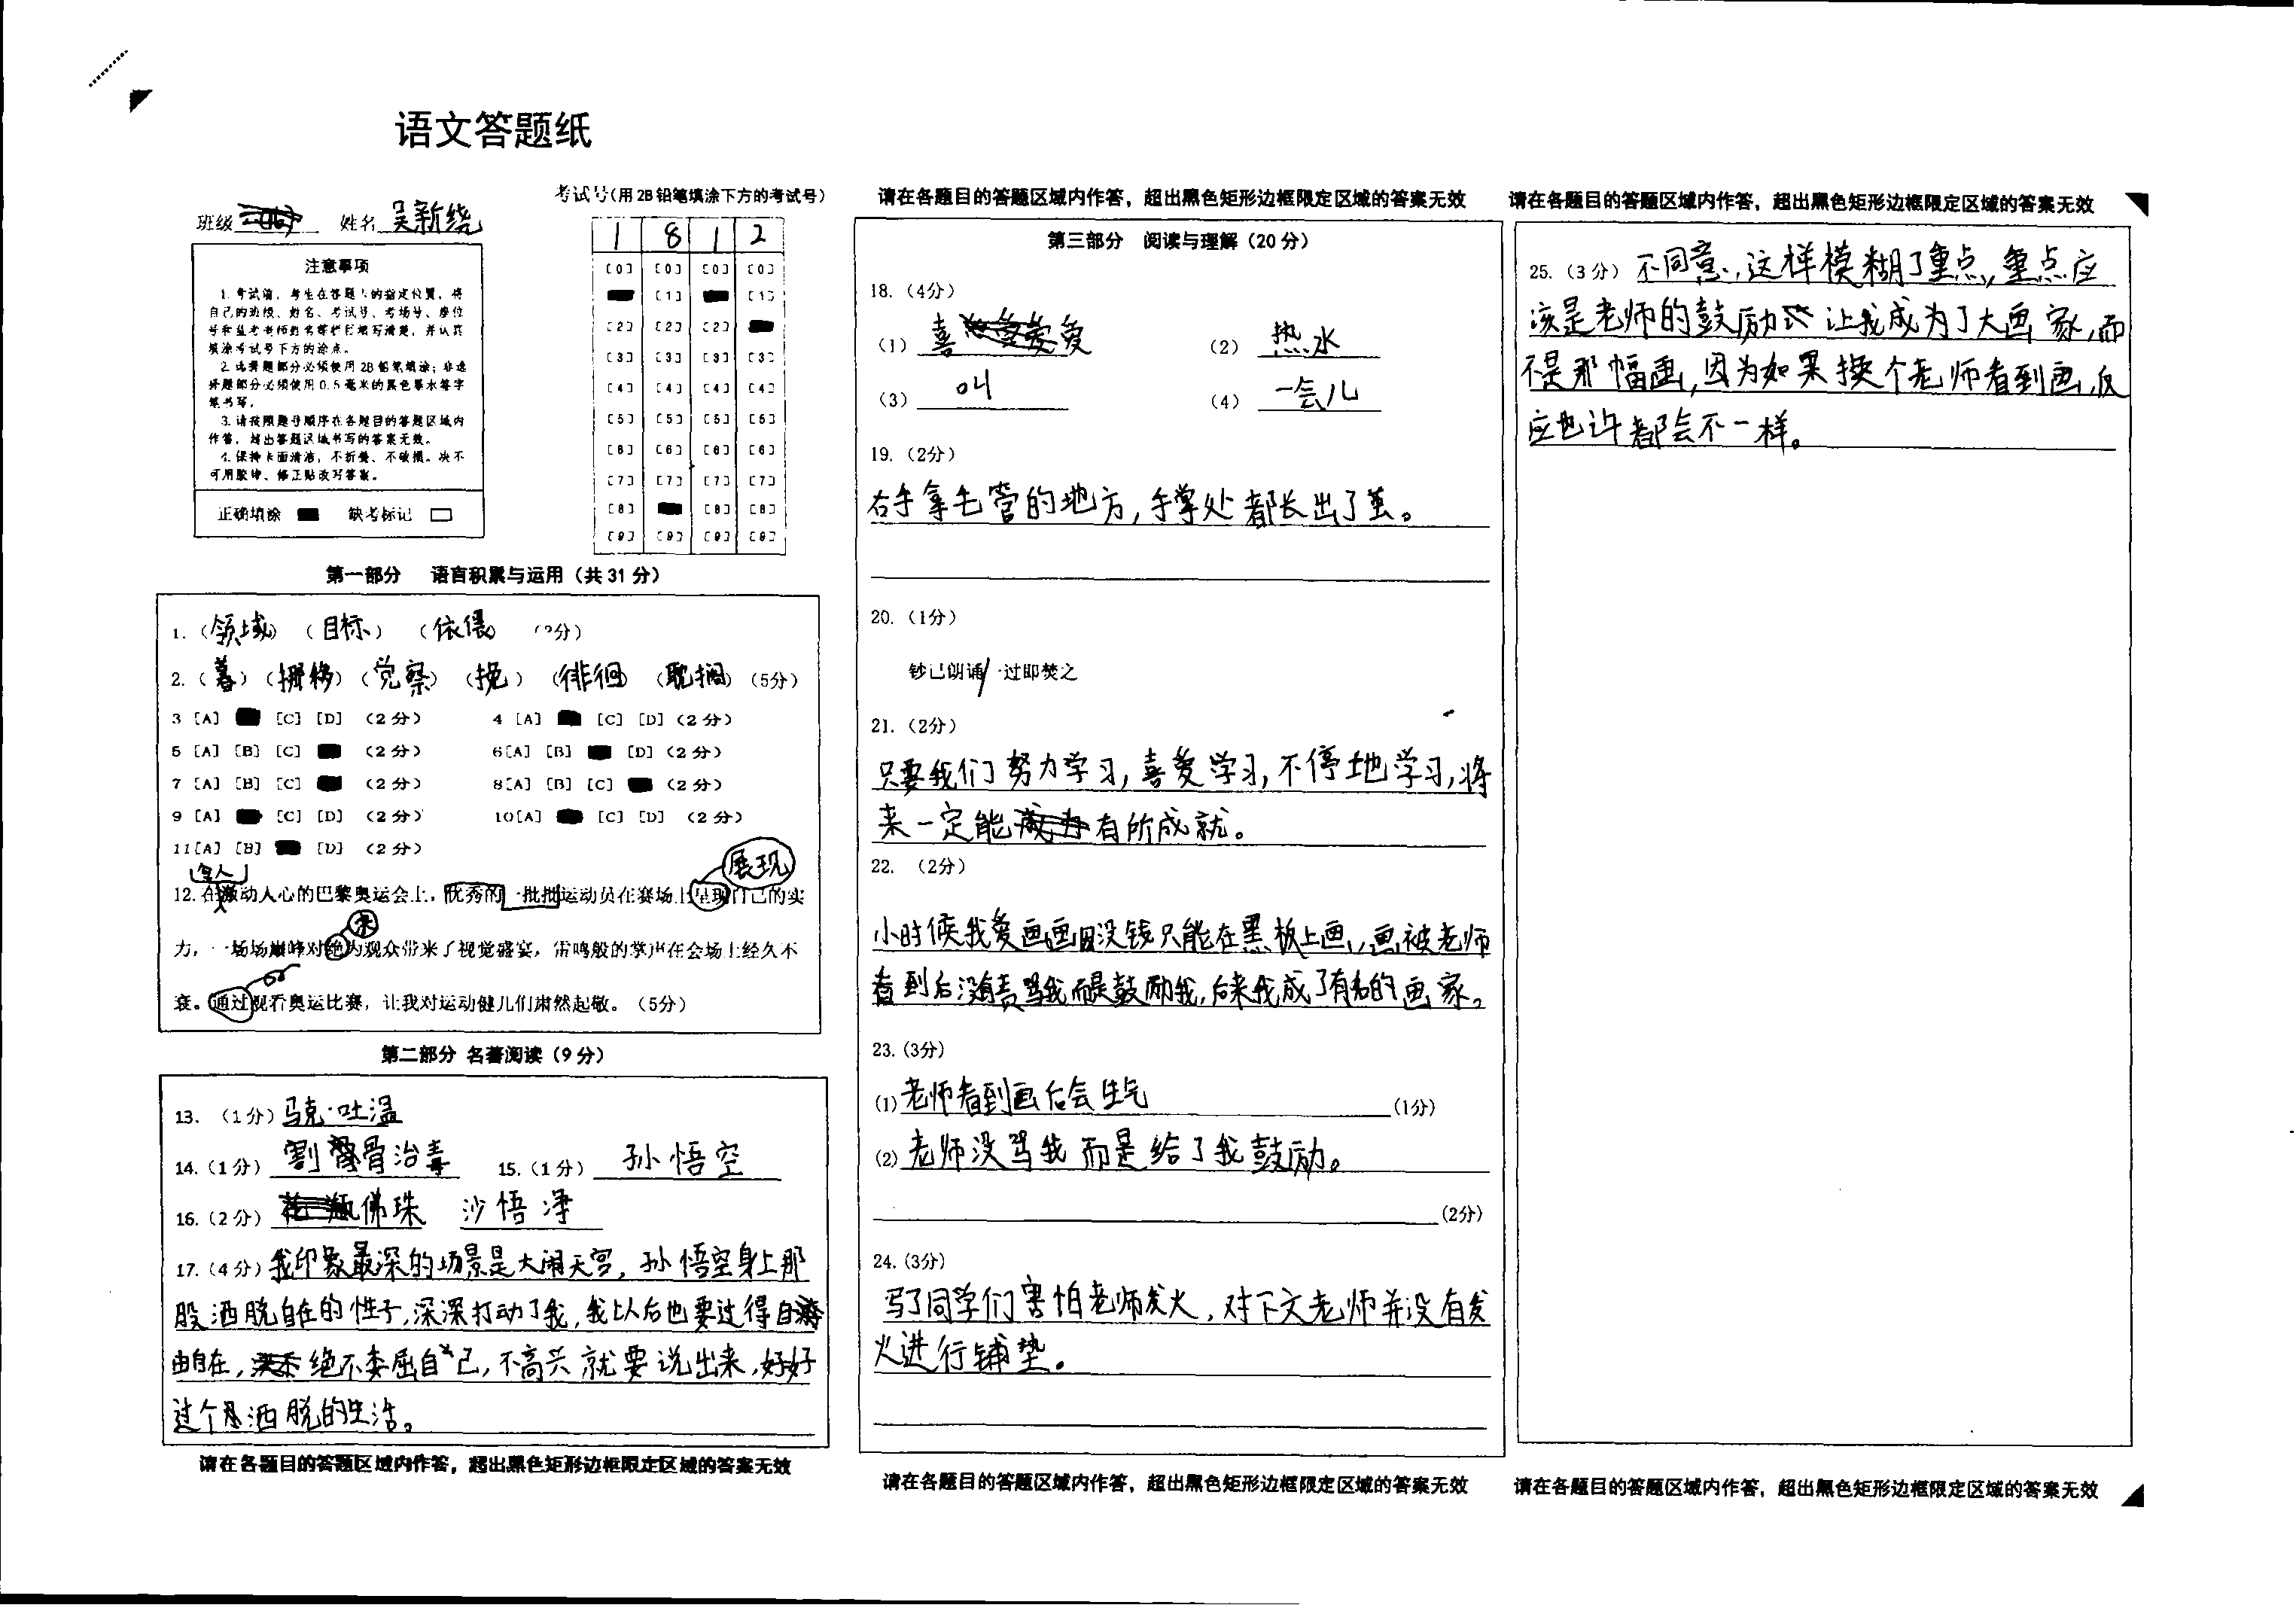 语文答题纸
班级 姓名 吴新绕
考试号(用2B铅笔填涂下方的考试号)
1 8 1 2
注意事项
1.考试前,考生在答题卡的指定位置,将
自己的班级、姓名、考试号、考场号、座位
号和监考老师姓名等栏目填写清楚,并认真
填涂考试号下方的涂点。
2.选择题部分必须使用2B铅笔填涂;非选
择题部分必须使用0.5毫米的黑色墨水签字
笔书写。
3.请按照题号顺序在各题目的答题区域内
作答,超出答题区域书写的答案无效。
4.保持卡面清洁,不折叠、不破损。决不
可用胶带、修正贴改写答案。
正确填涂 缺考标记
[0] [0] [0] [0]
[1] [1]
[2] [2] [2]
[3] [3] [3] [3]
[4] [4] [4] [4]
[5] [5] [5] [5]
[6] [6] [6] [6]
[7] [7] [7] [7]
[8] [8] [8]
[9] [9] [9] [9]
第一部分 语言积累与运用(共31分)
1.(领域)(目标)(依偎)
2.(暮)(挪移)(觉察)(挽)(徘徊)(耽搁)(5分)
3 [A] [C] [D] (2分) 4 [A] [C] [D] (2分)
5 [A] [B] [C] (2分) 6[A] [B] [D] (2分)
7 [A] [B] [C] (2分) 8[A] [B] [C] (2分)
9 [A] [C] [D] (2分) 10[A] [C] [D] (2分)
11[A] [B] [D] (2分)
展现
12.在激动人心的巴黎奥运会上,优秀的一批批运动员在赛场上呈现自己的实
来
力,一场场巅峰对绝为观众带来了视觉盛宴,雷鸣般的掌声在会场上经久不
衰。通过观看奥运比赛,让我对运动健儿们肃然起敬。(5分)
第二部分 名著阅读(9分)
13.(1分)马克·吐温
14.(1分)割骨治毒 15.(1分)孙悟空
16.(2分)佛珠 沙悟净
17.(4分)我印象最深的场景是大闹天宫,孙悟空身上那
股洒脱自在的性子,深深打动了我,我以后也要过得自
由自在,绝不委屈自己,不高兴就要说出来,好好
过个洒脱的生活。
请在各题目的答题区域内作答,超出黑色矩形边框限定区域的答案无效
请在各题目的答题区域内作答,超出黑色矩形边框限定区域的答案无效
第三部分 阅读与理解(20分)
18.(4分)
(1)喜爱 (2)热水
(3)叫 (4)一会儿
19.(2分)
右手拿毛管的地方,手掌处都长出了茧。
20.(1分)
钞已朗诵/一过即焚之
21.(2分)
只要我们努力学习,喜爱学习,不停地学习,将
来一定能有所成就。
22.(2分)
小时候我爱画画因没钱只能在黑板上画,画被老师
看到后没有责骂我而是鼓励我,后来我成了有名的画家。
23.(3分)
(1)老师看到画后会生气(1分)
(2)老师没骂我而是给了我鼓励。
(2分)
24.(3分)
写了同学们害怕老师发火,对下文老师并没有发
火进行铺垫。
请在各题目的答题区域内作答,超出黑色矩形边框限定区域的答案无效
请在各题目的答题区域内作答,超出黑色矩形边框限定区域的答案无效
25.(3分)不同意,这样模糊了重点,重点应
该是老师的鼓励让我成为了大画家,而
不是那幅画,因为如果换个老师看到画,反
应也许都会不一样。
请在各题目的答题区域内作答,超出黑色矩形边框限定区域的答案无效